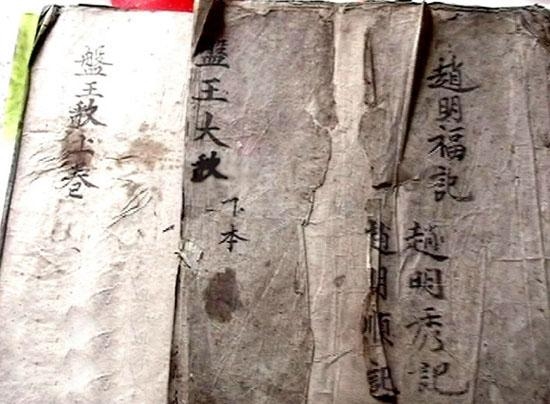 趙明福記
趙明秀記
一趙明順記
盤王大歌
下本
盤王歌上卷